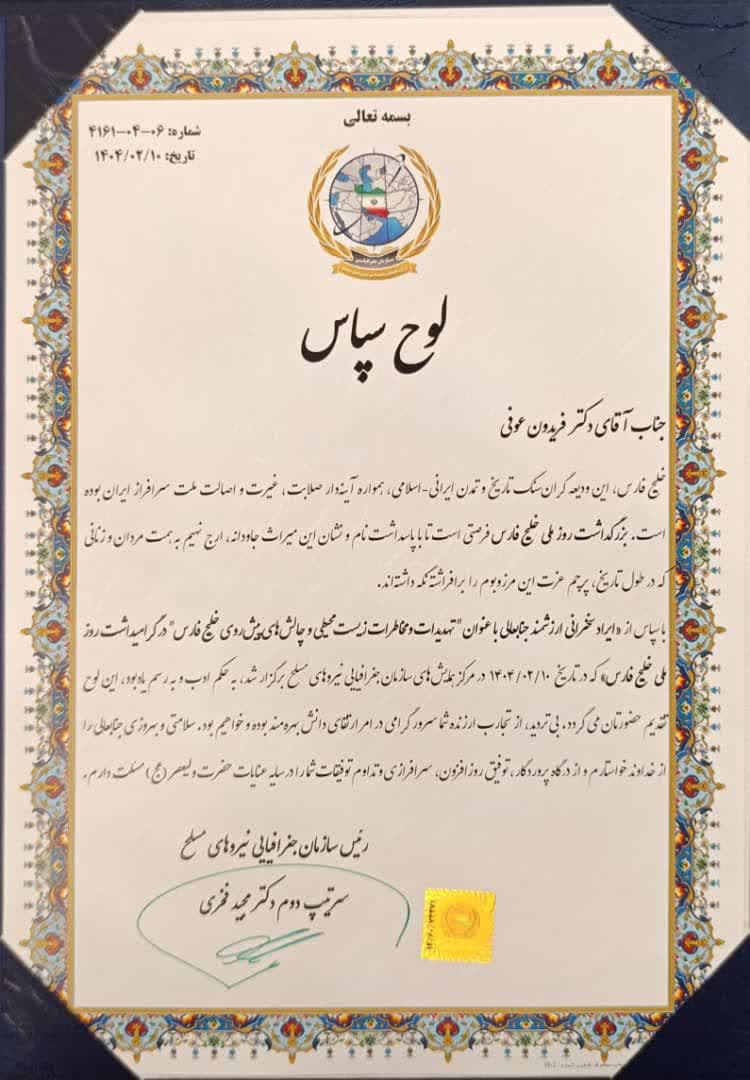 بسمه تعالی
شماره: ۰۶-۰۴-۴۱۶۱
تاریخ: ۱۴۰۴/۰۲/۱۰
لوح سپاس
جناب آقای دکتر فریدون عوفی
خلیج فارس، این ودیعه گران سنگ تاریخ و تمدن ایرانی-اسلامی، همواره آینه‌دار صلابت، غیرت و اصالت ملت سرافراز ایران بوده
است. بزرگداشت روز ملی خلیج فارس فرصتی است تا با پاسداشت نام و نشان این میراث جاودانه، ارج نهیم به همت مردان و زنانی
که در طول تاریخ، پرچم عزت این مرزوبوم را برافراشته نگه داشته‌اند.
با سپاس از «ایراد سخنرانی ارزشمند جنابعالی با عنوان "تهدیدات و مخاطرات زیست محیطی و چالش‌های پیش‌روی خلیج فارس" در گرامیداشت روز
ملی خلیج فارس» که در تاریخ ۱۴۰۴/۰۲/۱۰ در مرکز همایش‌های سازمان جغرافیایی نیروهای مسلح برگزار شد، به حکم ادب و به رسم یادبود، این لوح
تقدیم حضورتان می گردد. بی تردید، از تجارب ارزنده شما سرور گرامی در امر ارتقای دانش بهره مند بوده و خواهیم بود. سلامتی و بهروزی جنابعالی را
از خداوند خواستارم و از درگاه پروردگار، توفیق روزافزون، سرافرازی و تداوم توفیقات شما را در سایه عنایات حضرت ولیعصر (عج) مسئلت دارم.
رئیس سازمان جغرافیایی نیروهای مسلح
سرتیپ دوم دکتر مجید فخری